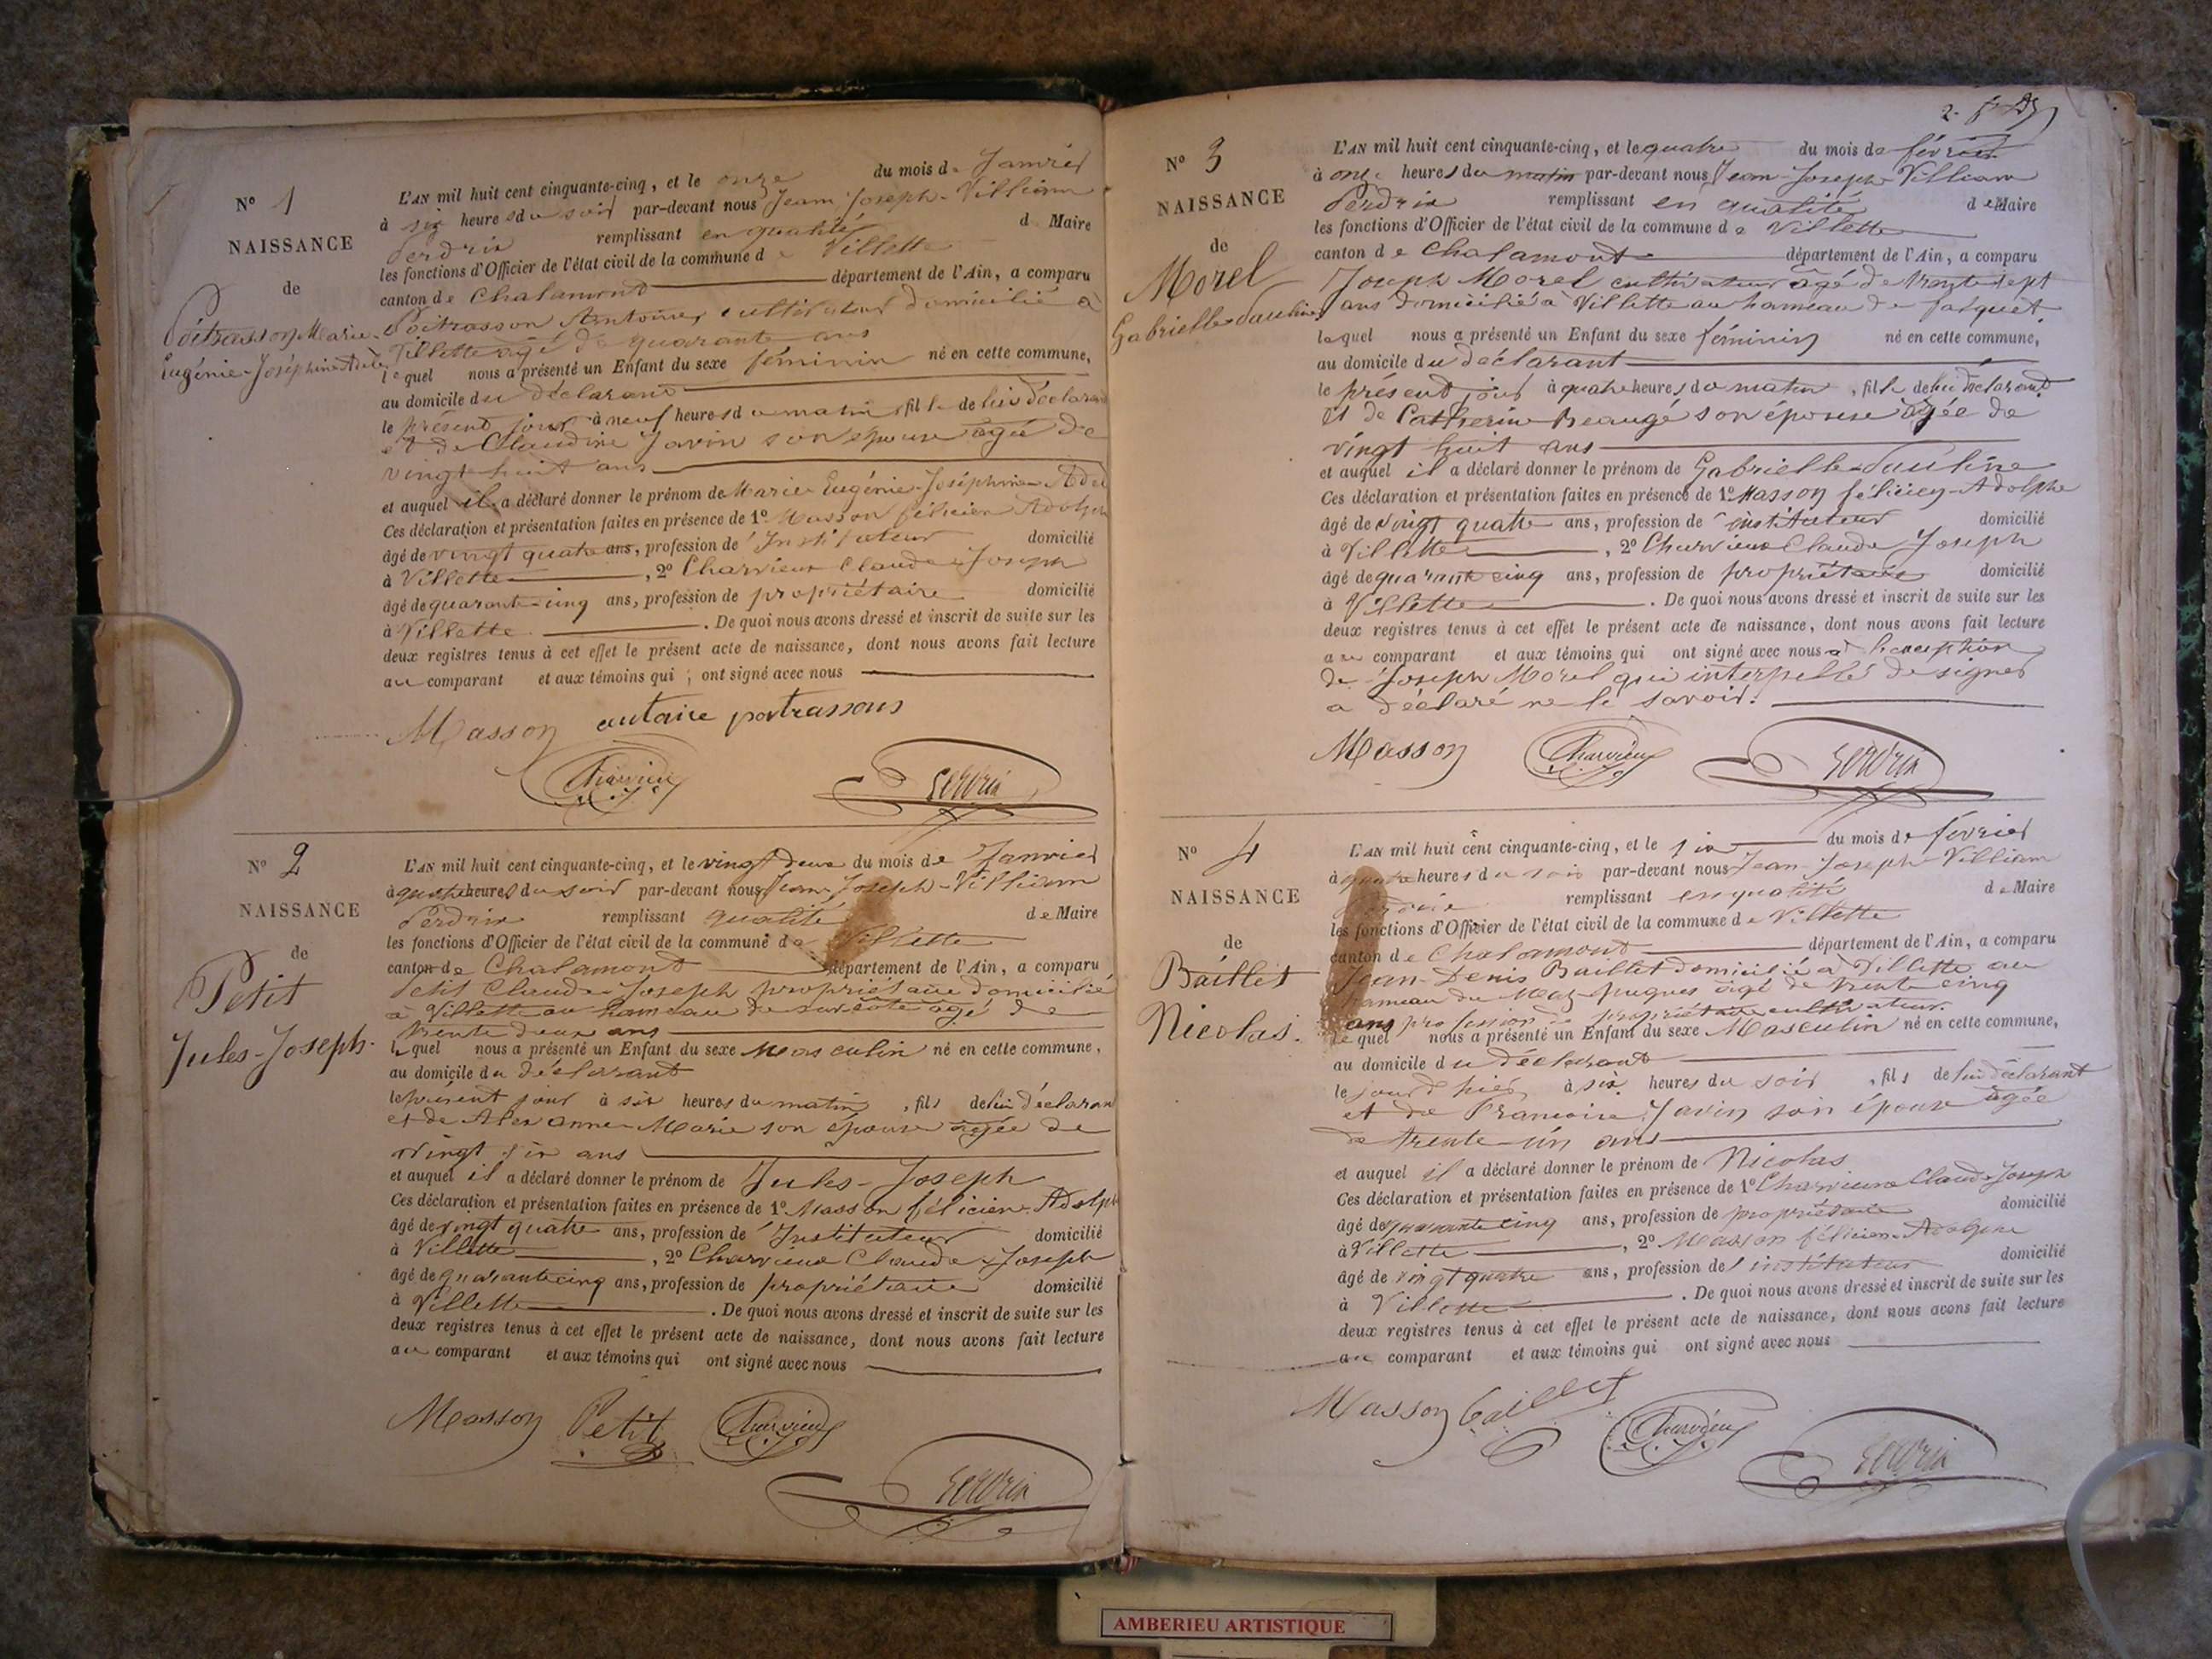 N° 1
NAISSANCE
de
Poitrasson Marie
Eugénie-Joséphine Adèle
L'AN mil huit cent cinquante-cinq, et le onze du mois de Janvier
à six heures du soir par-devant nous Jean Joseph-Villiam
Perdrix remplissant en qualité de Maire
les fonctions d'Officier de l'état civil de la commune de Villette
canton de Chalamont département de l'Ain, a comparu
Poitrasson Antoine, cultivateur domicilié à
Villette agé de quarante ans
lequel nous a présenté un Enfant du sexe féminin né en cette commune,
au domicile du déclarant
le présent jour à neuf heures du matin fille de lui déclarant
et de Claudine Javin son épouse agée de
vingt huit ans
et auquel il a déclaré donner le prénom de Marie Eugénie-Joséphine Adè
Ces déclaration et présentation faites en présence de 1° Masson félicien Adolph
âgé de vingt quatre ans, profession de Instituteur domicilié
à Villette, 2° Charvieux Claude-Joseph
âgé de quarante-cinq ans, profession de propriétaire domicilié
à Villette. De quoi nous avons dressé et inscrit de suite sur les
deux registres tenus à cet effet le présent acte de naissance, dont nous avons fait lecture
au comparant et aux témoins qui ont signé avec nous
Masson antoine poitrasson
Charvieux Perdrix
N° 2
NAISSANCE
de
Petit
Jules-Joseph.
L'AN mil huit cent cinquante-cinq, et le vingt deux du mois de Janvier
à quatre heures du soir par-devant nous Jean Joseph-Villiam
Perdrix remplissant qualité de Maire
les fonctions d'Officier de l'état civil de la commune de Villette
canton de Chalamont département de l'Ain, a comparu
Petit Claude-Joseph propriétaire domicilié
à Villette au hameau de sur-côte agé de
trente deux ans
lequel nous a présenté un Enfant du sexe Masculin né en cette commune,
au domicile du déclarant
le présent jour à six heures du matin, fils de lui déclarant
et de Anne-Marie son épouse agée de
vingt six ans
et auquel il a déclaré donner le prénom de Jules-Joseph
Ces déclaration et présentation faites en présence de 1° Masson félicien-Adolph
âgé de vingt quatre ans, profession de Instituteur domicilié
à Villette, 2° Charvieux Claude-Joseph
âgé de quarante cinq ans, profession de propriétaire domicilié
à Villette. De quoi nous avons dressé et inscrit de suite sur les
deux registres tenus à cet effet le présent acte de naissance, dont nous avons fait lecture
au comparant et aux témoins qui ont signé avec nous
Masson Petit Charvieux
Perdrix
2.
N° 3
NAISSANCE
de
Morel
Gabrielle Pauline
L'AN mil huit cent cinquante-cinq, et le quatre du mois de février
à onze heures du matin par-devant nous Jean-Joseph-Villiam
Perdrix remplissant en qualité de Maire
les fonctions d'Officier de l'état civil de la commune de Villette
canton de Chalamont département de l'Ain, a comparu
Joseph Morel cultivateur agé de trente sept
ans domicilié à Villette au hameau de
lequel nous a présenté un Enfant du sexe féminin né en cette commune,
au domicile du déclarant
le présent jour à quatre heures du matin, fille de lui déclarant
et de Catherine Beaugé son épouse agée de
vingt huit ans
et auquel il a déclaré donner le prénom de Gabrielle-Pauline
Ces déclaration et présentation faites en présence de 1° Masson félicien-Adolphe
âgé de vingt quatre ans, profession de instituteur domicilié
à Villette, 2° Charvieux Claude Joseph
âgé de quarante cinq ans, profession de propriétaire domicilié
à Villette. De quoi nous avons dressé et inscrit de suite sur les
deux registres tenus à cet effet le présent acte de naissance, dont nous avons fait lecture
au comparant et aux témoins qui ont signé avec nous à l'exception
de Joseph Morel qui interpellé de signer
a déclaré ne le savoir.
Masson Charvieux Perdrix
N° 4
NAISSANCE
de
Baillet
Nicolas.
L'AN mil huit cent cinquante-cinq, et le six du mois de février
à quatre heures du soir par-devant nous Jean-Joseph-Villiam
Perdrix remplissant en qualité de Maire
les fonctions d'Officier de l'état civil de la commune de Villette
canton de Chalamont département de l'Ain, a comparu
Jean-Denis Baillet domicilié à Villette au
hameau du agé de trente cinq
ans profession de propriétaire cultivateur.
lequel nous a présenté un Enfant du sexe Masculin né en cette commune,
au domicile du déclarant
le jour d'hier à six heures du soir, fils de lui déclarant
et de Francoise Javin son épouse agée
de trente-un ans
et auquel il a déclaré donner le prénom de Nicolas
Ces déclaration et présentation faites en présence de 1° Charvieux Claude Joseph
âgé de quarante cinq ans, profession de propriétaire domicilié
à Villette, 2° Masson félicien-Adolphe
âgé de vingt quatre ans, profession de instituteur domicilié
à Villette. De quoi nous avons dressé et inscrit de suite sur les
deux registres tenus à cet effet le présent acte de naissance, dont nous avons fait lecture
au comparant et aux témoins qui ont signé avec nous
Masson Baillet Charvieux
Perdrix
AMBERIEU ARTISTIQUE